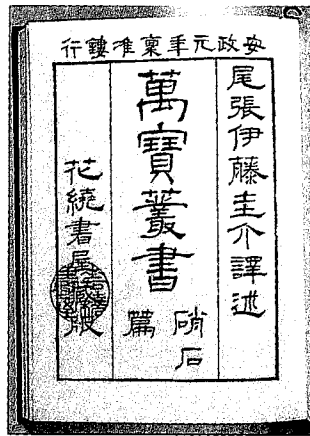 安政元年稟准鏤行
尾張伊藤圭介譯述
萬寶叢書
硝石
篇
花繞書屋